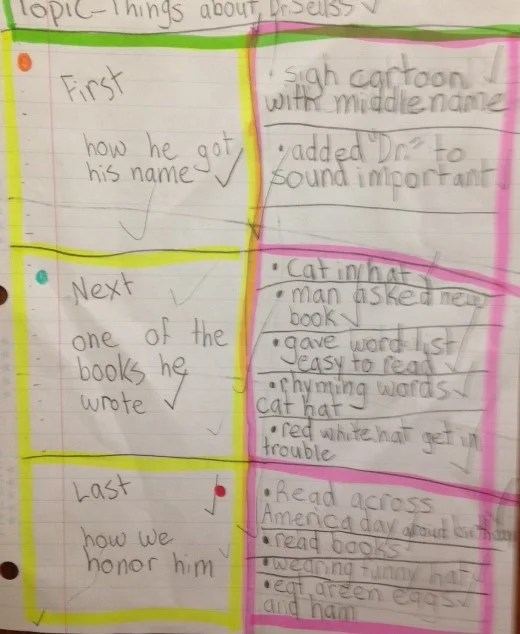 Topic-Things about Dr. Seuss
First
how he got
his name
• sigh cartoon
with middle name
• added "Dr." to
sound important
Next
one of the
books he
wrote
• Cat in hat
• man asked new
book
• gave word list
easy to read
• rhyming words
cat hat
• red white hat get in
trouble
Last
how we
honor him
• Read across
America day about birthday
• read books
• wearing funny hat
• eat green eggs
and ham